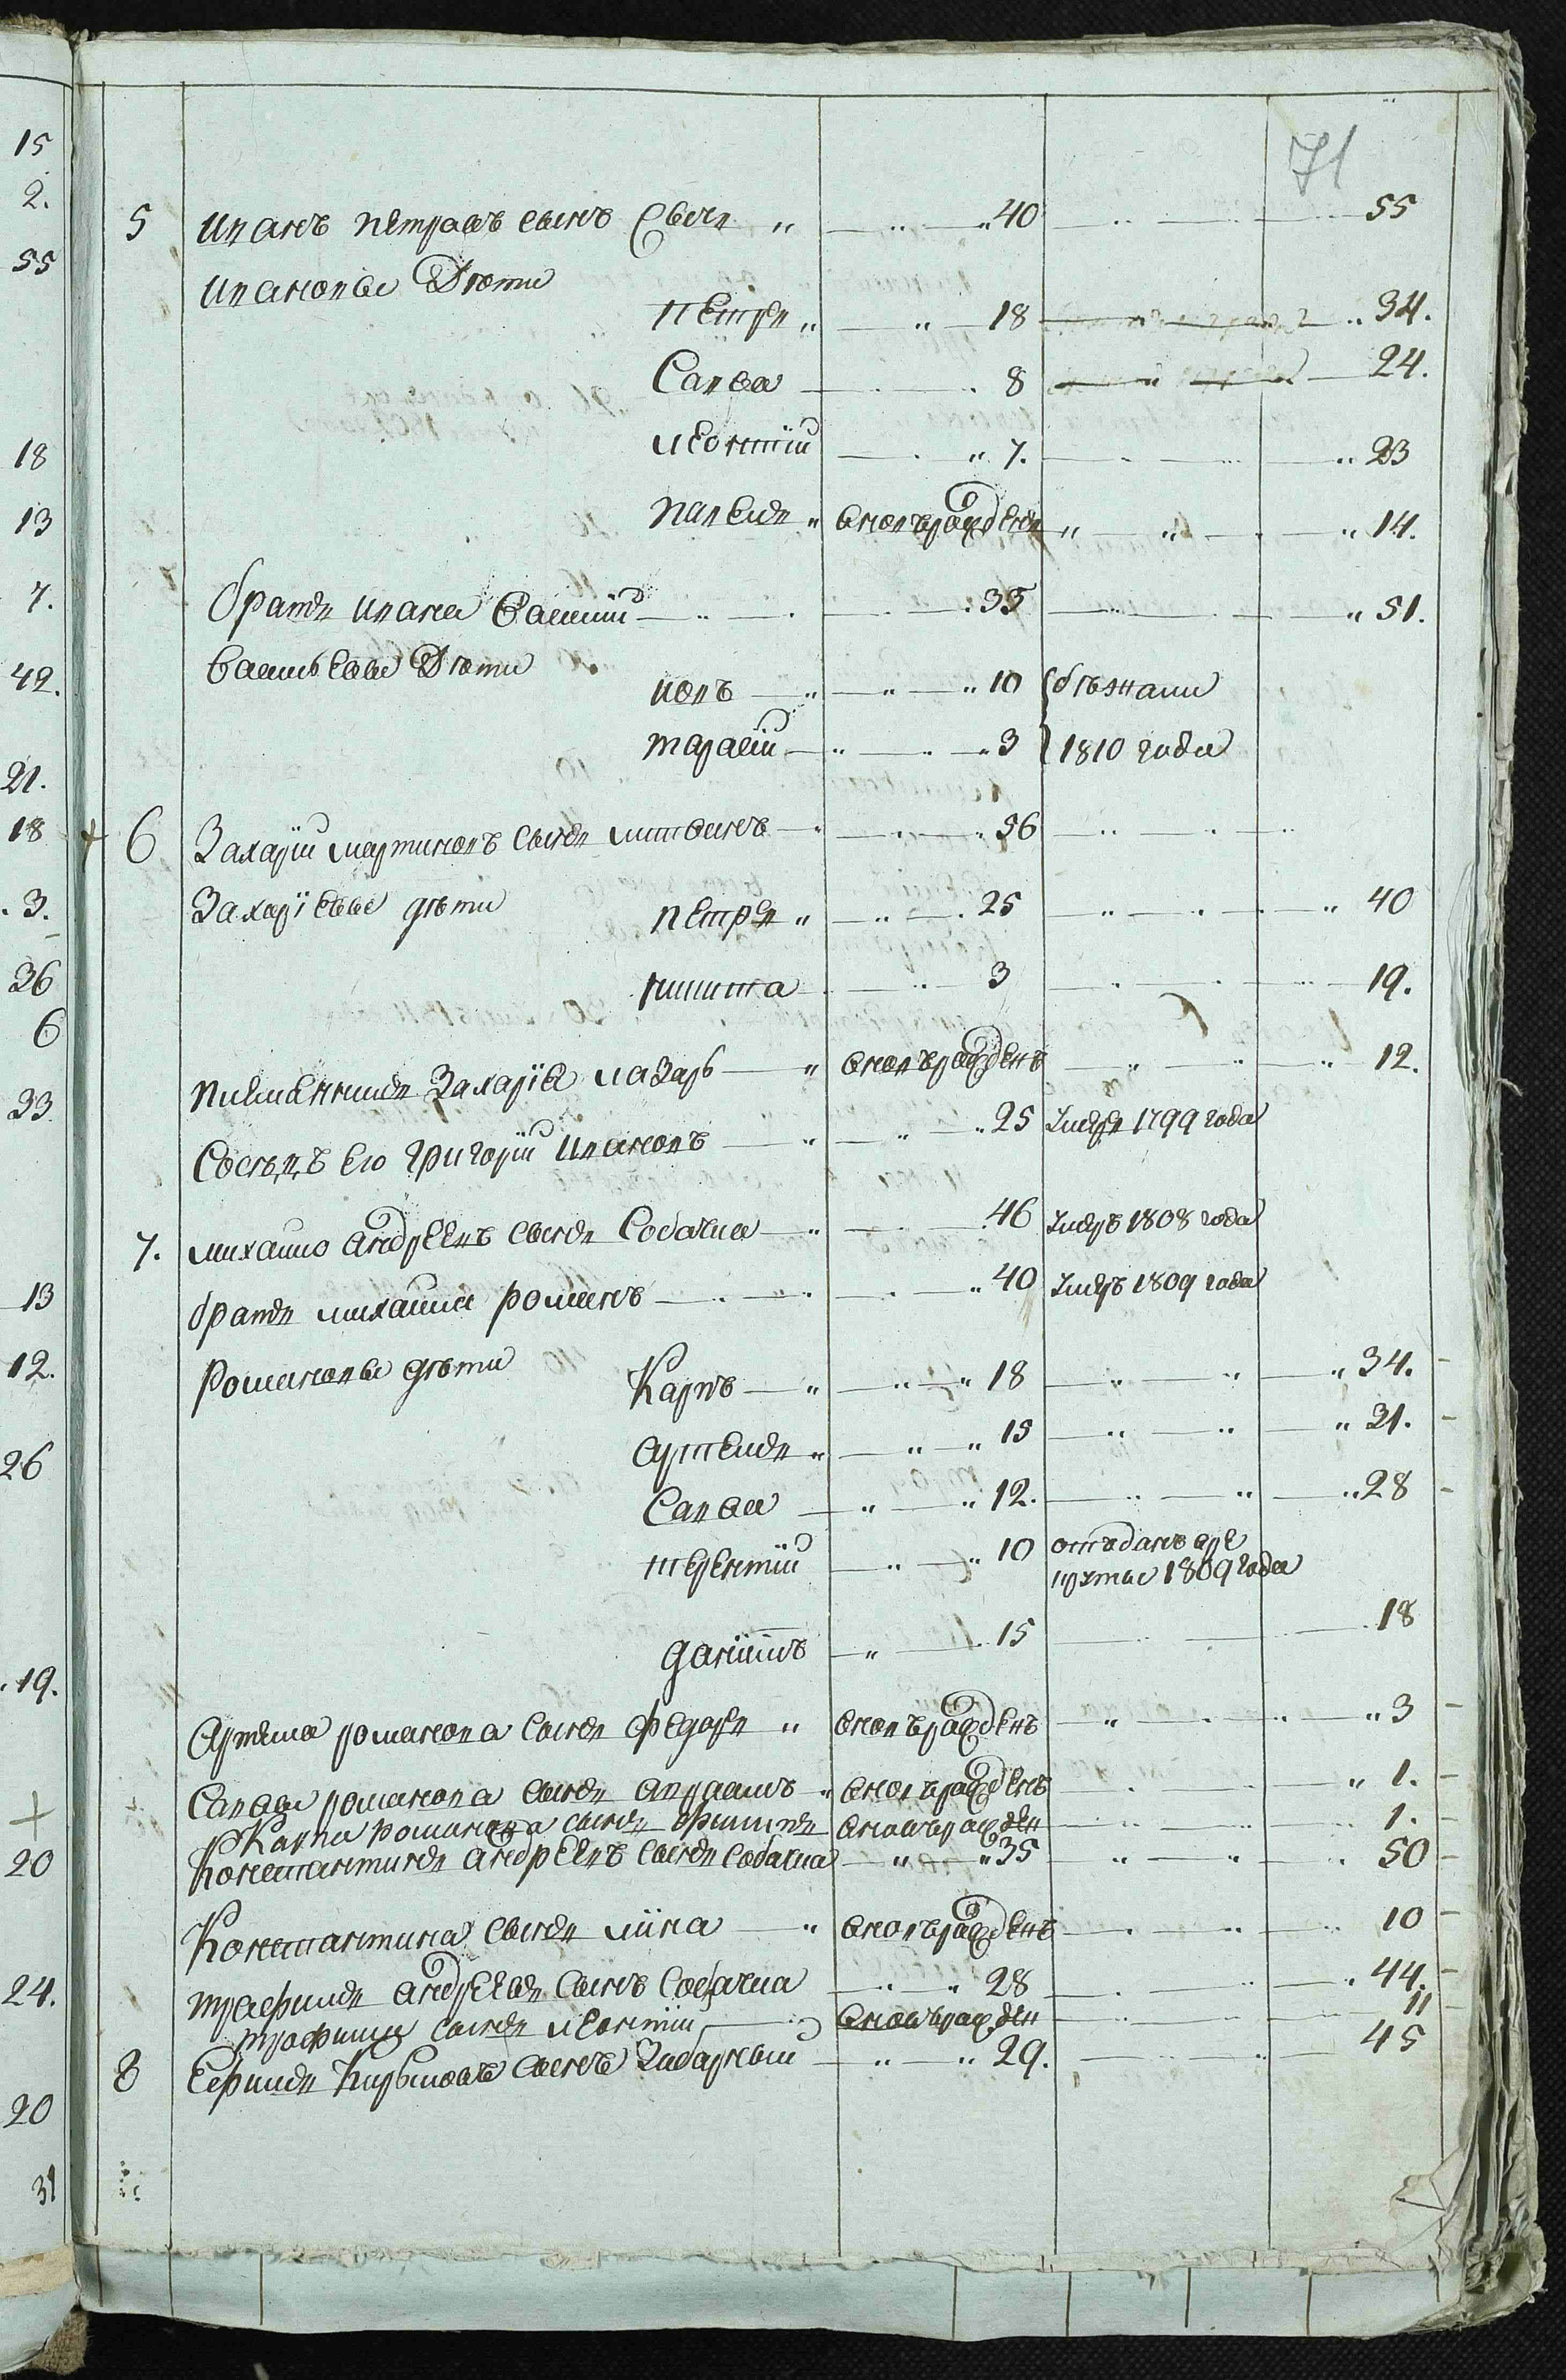 71
5 Иванъ петровъ сынъ Евсей „ „ 40 55
Ивановы Дѣти
петръ „ „ 18 „ 34.
Савва 8 24.
леонтїй „ 7. „ 23
павелъ „ вновьрожденъ „ „ „ 14.
братъ ивана Василий 35 „ 51.
Васильевы Дѣти
иовъ „ „ „ 10 бѣжали
тарасїй „ „ 3 1810 года
6 Захарїй мартиновъ сынъ литвинъ „ 56
Захарїевы дѣти петръ „ „ 25 „ „ 40
никита 3 19.
племянникъ Захарїя лазарь „ вновьрожденъ „ „ „ 12.
Его григорїй ивановъ „ „ „ 25 умеръ 1799 года
7. михайло андреевъ сынъ Собачка „ 46 умеръ 1808 года
братъ михайлы романъ „ 40 умеръ 1809 года
Романовы дѣти Карпъ „ „ „ 18 „ „ „ 34.
артемъ „ „ „ 15 „ „ „ 31.
Савва „ „ 12. „ „ 28
терентїй „ „ 10 отъданъ вре
круты 1809 года
данїилъ „ 15 18
Артема романова сынъ федоръ „ вновьрожденъ „ „ „ 3
Саввы романова сынъ авраамъ „ вновьрожденъ „ 1.
Карпа романова сынъ филипъ вновьрожден 1.
Константинъ андреевъ сынъ Собачка „ „ 35 „ „ 50
Константина сынъ мина „ вновьрожденъ „ 10
трафимъ андреевъ сынъ Собачка „ 28 44.
трофима сынъ леонтїй вновьрожден 11
8 Ефимъ Кириловъ сынъ „ „ 29. „ 45
15
2.
55
18
13
7.
42.
21.
18
3.
36
6
33
13
12.
26
19.
20
24.
20
31